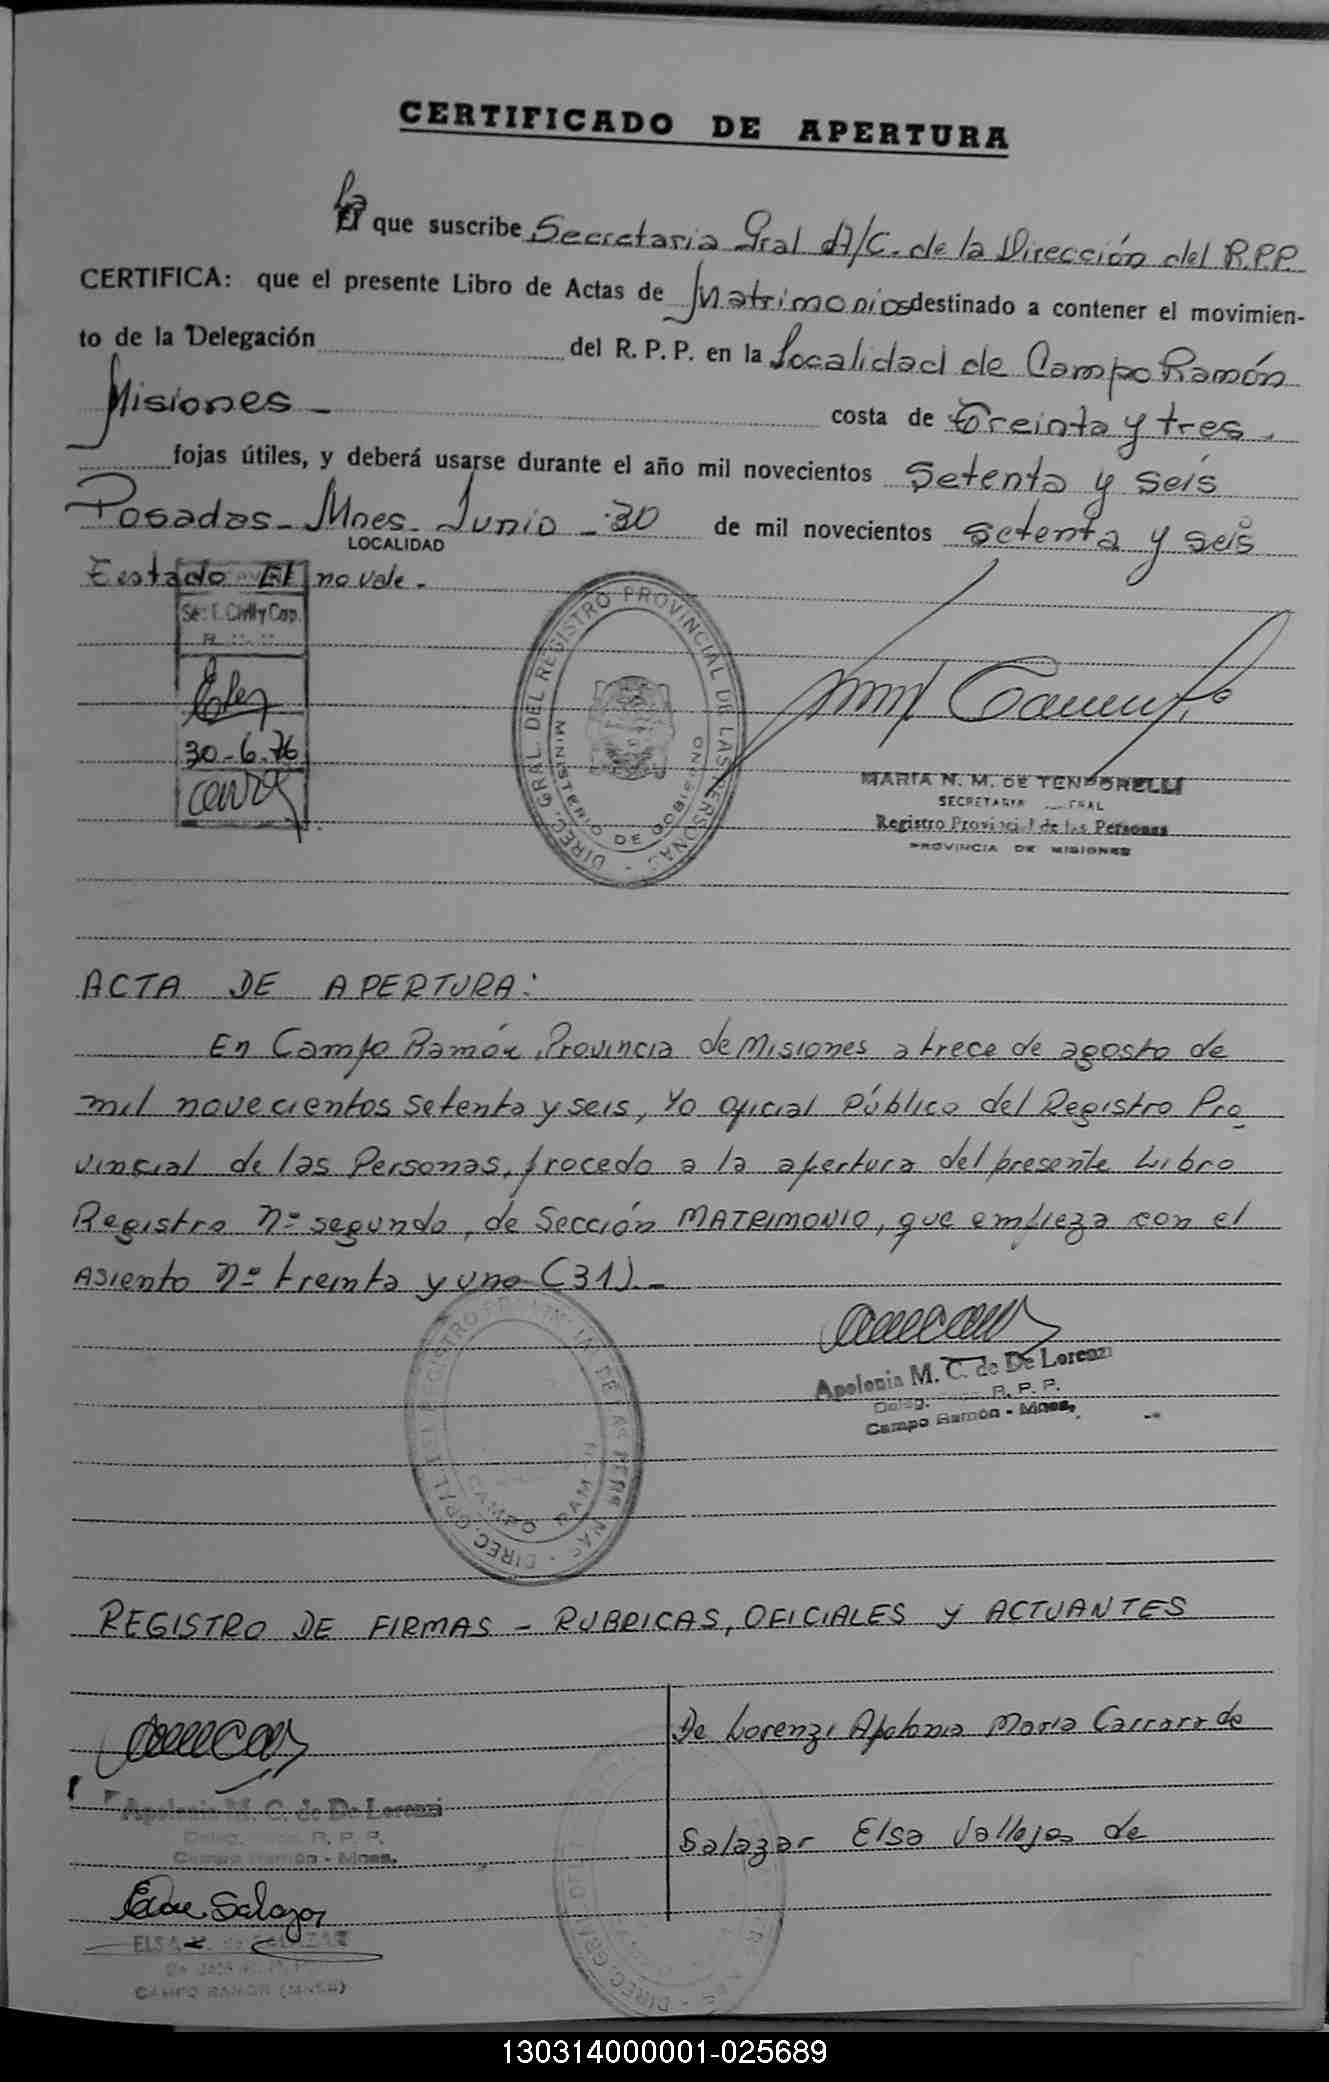 CERTIFICADO DE APERTURA
La
El que suscribe Secretaria Gral A/C. de la Dirección del R.P.P.
CERTIFICA: que el presente Libro de Actas de Matrimonios destinado a contener el movimien-
to de la Delegación del R. P. P. en la Localidad de Campo Ramón
Misiones - costa de Treinta y tres.
fojas útiles, y deberá usarse durante el año mil novecientos setenta y seis
Posadas - Mnes. Junio - 30 de mil novecientos setenta y seis
LOCALIDAD
Testado El no vale.
Sec. E. Civil y Cap.
30-6-76
DIREC. GRAL. DEL REGISTRO PROVINCIAL DE LAS PERSONAS -
MINISTERIO DE GOBIERNO
MARIA N. M. DE TEMPORELLI
SECRETARIA GRAL
Registro Provincial de las Personas
PROVINCIA DE MISIONES
ACTA DE APERTURA:
En Campo Ramón, Provincia de Misiones a trece de agosto de
mil novecientos setenta y seis, Yo oficial Público del Registro Pro
vincial de las Personas, procedo a la apertura del presente Libro
Registro Nº segundo, de Sección MATRIMONIO, que empieza con el
Asiento Nº treinta y uno (31).-
DIREC. GRAL. DEL REGISTRO PROVINCIAL DE LAS PERSONAS -
CAMPO RAMON
Apolonia M. C. de De Lorenzi
Deleg. R. P. P.
Campo Ramón - Mnes.
REGISTRO DE FIRMAS - RUBRICAS, OFICIALES Y ACTUANTES
De Lorenzi Apolonia Maria Carrara de
Apolonia M. C. de De Lorenzi
Deleg. R. P. P.
Campo Ramón - Mnes.
Salazar Elsa Vallejos de
Salazar
ELSA V. de SALAZAR
CAMPO RAMON (MNES)
130314000001-025689